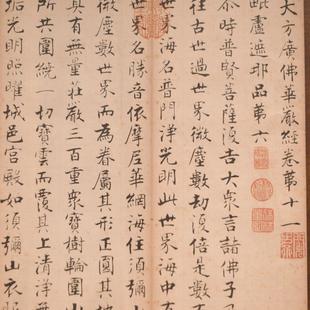 大方廣佛華嚴經卷第十一
毗盧遮那品第六
尒時普賢菩薩復告大衆言諸佛子
往古世過世界微塵數劫復倍是數
世界海名普門淨光明此世界海中有
世界名勝音依摩尼華網海住須彌
微塵數世界而為眷屬其形正圓其地
具有無量莊嚴三百重衆寶樹輪圍山
所共圍繞一切寶雲而覆其上清淨
垢光明照曜城邑宮殿如須彌山衣